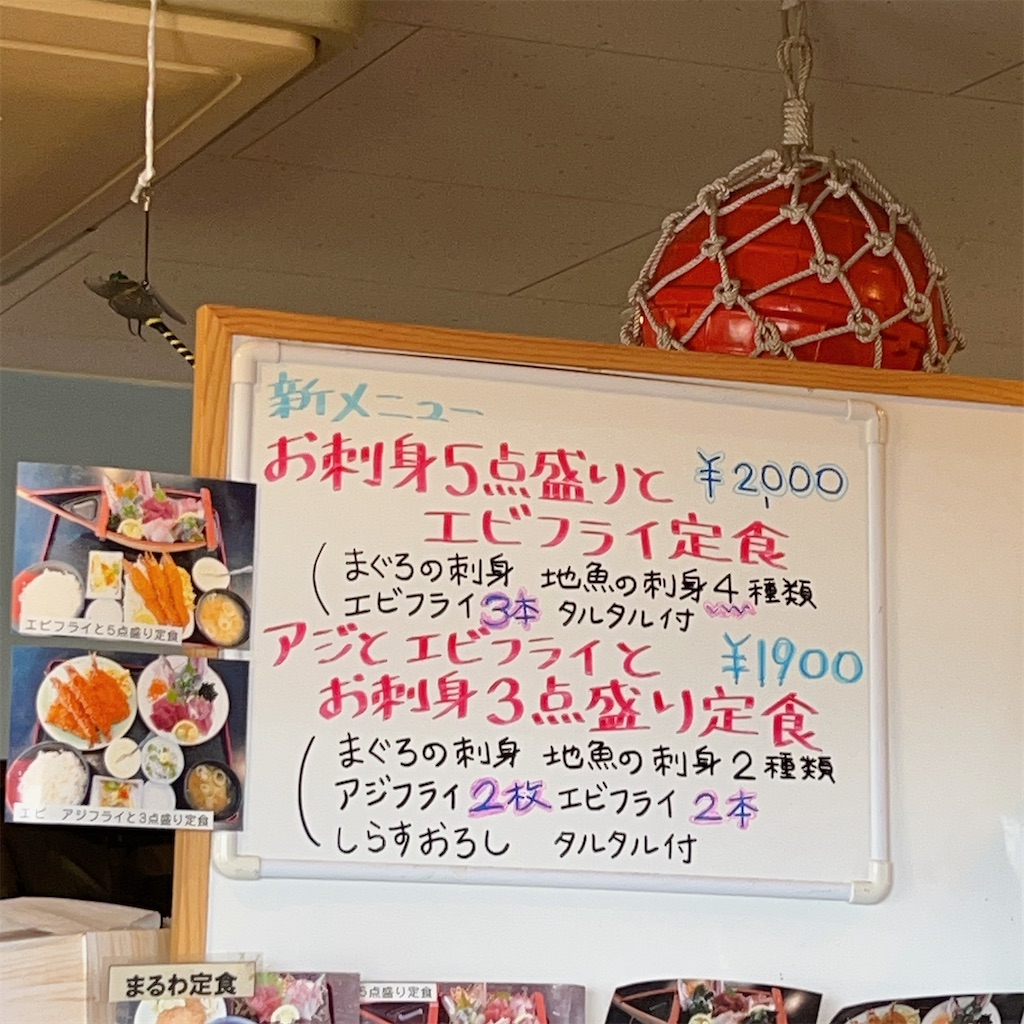 新メニュー
お刺身5点盛りと ¥2,000
エビフライ定食
(まぐろの刺身 地魚の刺身4種類
エビフライ3本 タルタル付
アジとエビフライと ¥1900
お刺身3点盛り定食
(まぐろの刺身 地魚の刺身2種類
アジフライ2枚 エビフライ2本
しらすおろし タルタル付
エビフライと5点盛り定食
エビ アジフライと3点盛り定食
まるわ定食
5点盛り定食